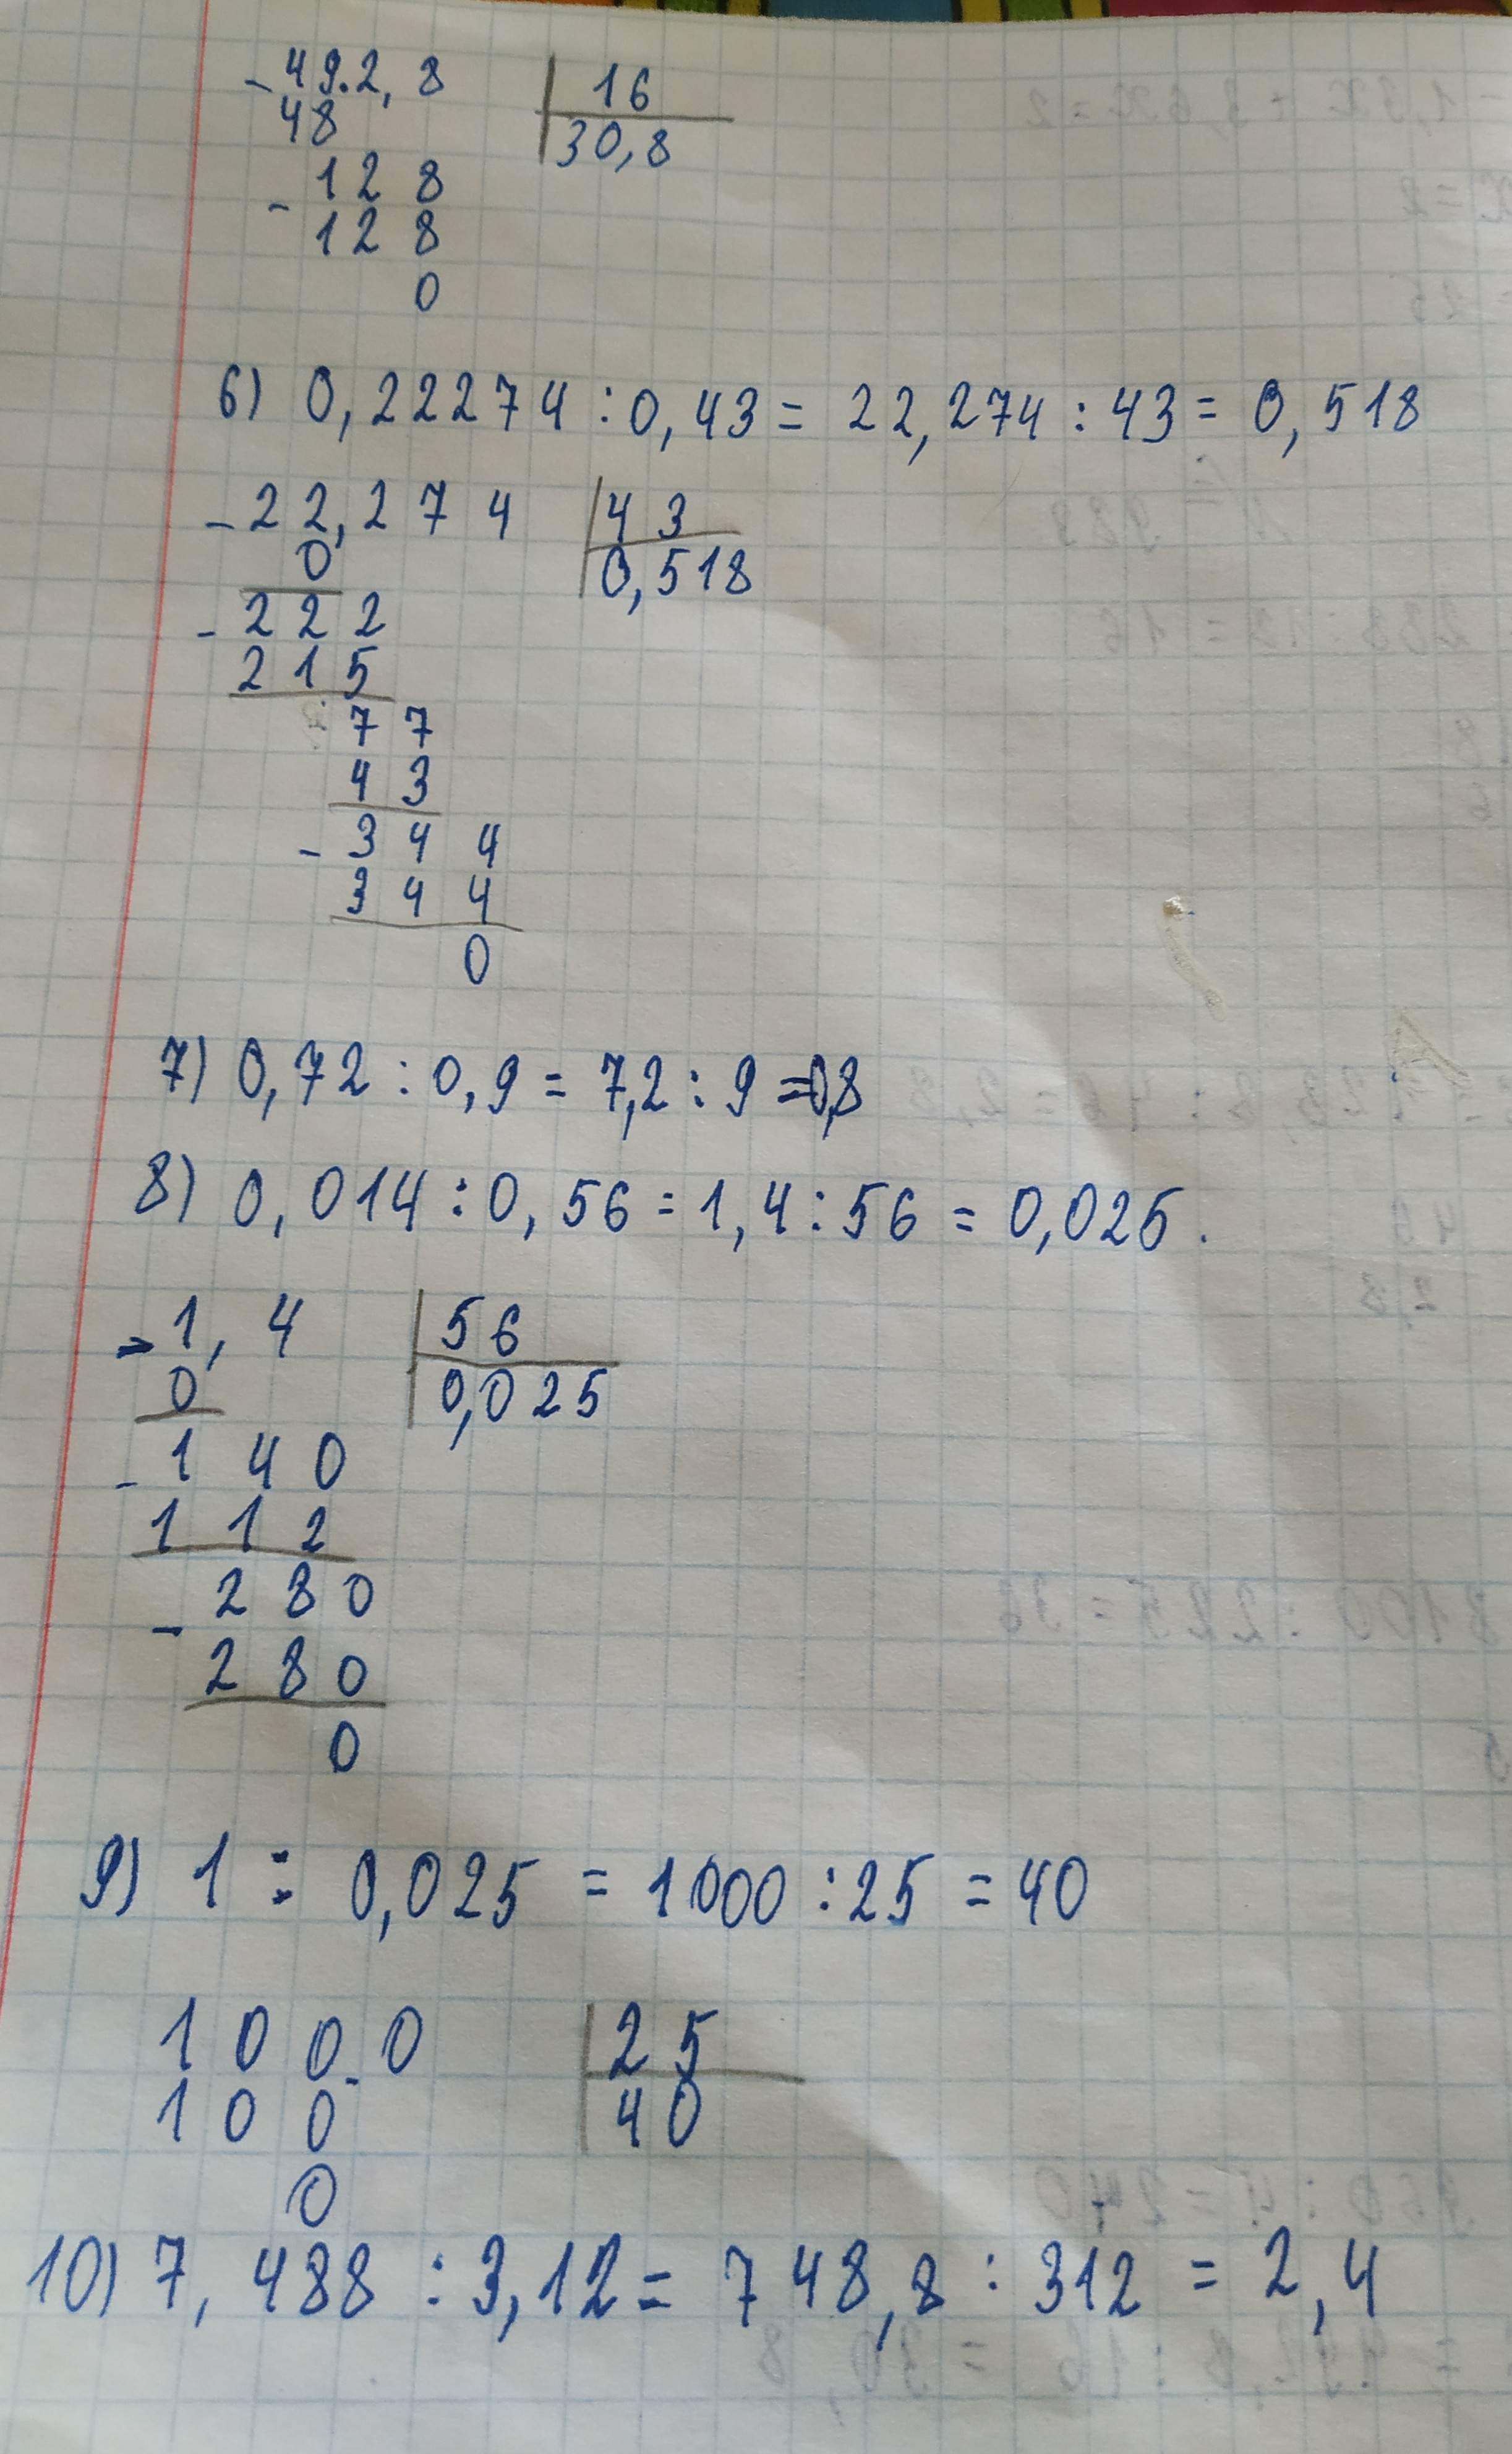 -49.2,8 | 16
48 30,8
- 128
128
0
6) 0,22274 : 0,43 = 22,274 : 43 = 0,518
- 22,274 | 43
0 0,518
- 222
215
77
43
- 344
344
0
7) 0,72 : 0,9 = 7,2 : 9 = 0,8
8) 0,014 : 0,56 = 1,4 : 56 = 0,025.
- 1,4 | 56
0 0,025
- 140
112
- 280
280
0
9) 1 : 0,025 = 1000 : 25 = 40
100.0 | 25
100 40
0
10) 7,488 : 3,12 = 748,8 : 312 = 2,4